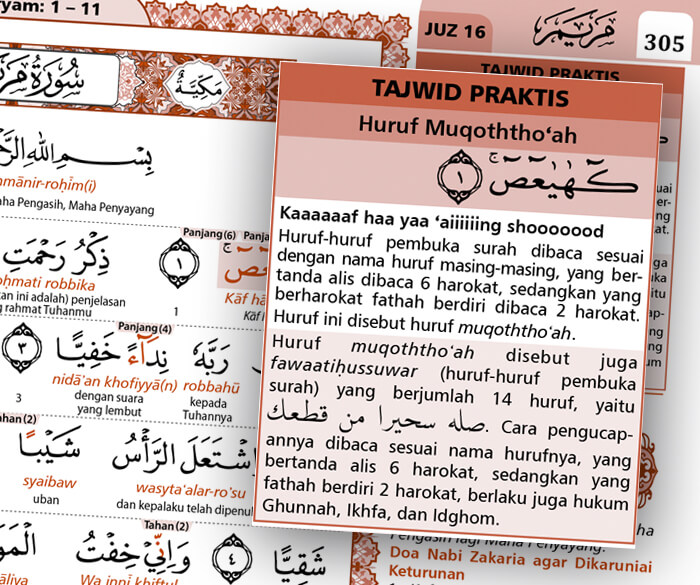 yam: 1 – 11
JUZ 16
مَرْيَم
305
مَكِّيَّةٌ
TAJWID PRAKTIS
TAJWID PRAKTIS
Huruf Muqoththo‘ah
كۤهٰيٰعۤصۤ ۚ ١
Kaaaaaaf haa yaa ‘aiiiiiing shooooood
Huruf-huruf pembuka surah dibaca sesuai
dengan nama huruf masing-masing, yang ber-
tanda alis dibaca 6 harokat, sedangkan yang
berharokat fathah berdiri dibaca 2 harokat.
Huruf ini disebut huruf muqoththo‘ah.
Huruf muqoththo‘ah disebut juga
fawaatiḥussuwar (huruf-huruf pembuka
surah) yang berjumlah 14 huruf, yaitu
صله سحيرا من قطعك. Cara pengucap-
annya dibaca sesuai nama hurufnya, yang
bertanda alis 6 harokat, sedangkan yang
fathah berdiri 2 harokat, berlaku juga hukum
Ghunnah, Ikhfa, dan Idghom.
mānir-roḥīm(i)
Pengasih, Maha Penyayang
Panjang (6)
ذِكْرُ رَحْمَتِ
١
ohmati robbika
Kāf
1
an ini adalah) penjelasan
rahmat Tuhanmu
Panjang (4)
رَبَّهٗ نِدَاۤءً خَفِيًّا
٣
nidā'an khofiyyā(n) robbahū
dengan suara
yang lembut
kepada
Tuhannya
3
ahan (2)
اشْتَعَلَ الرَّأْسُ شَيْبًا
syaibaw
wasyta‘alar-ro'su
uban
dan kepalaku telah dipenu
Tahan (2)
شَقِيًّا
٤
وَاِنِّيْ خِفْتُ
Wa innī khiftul
Pengasih lagi Maha Penyayang.
Doa Nabi Zakaria agar Dikaruniai
Keturunan